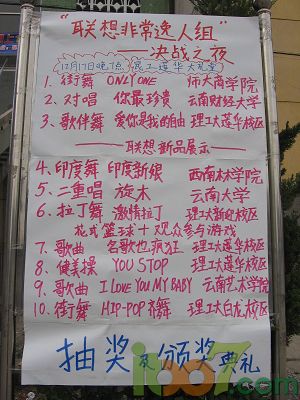 "联想非常逸人组"
——决战之夜
12月17日晚7点 民工莲华大礼堂
1. 街舞 ONLY ONE 师大商学院
2. 对唱 你最珍贵 云南财经大学
3. 歌伴舞 爱你是我的自由 理工大莲华校区
——联想新品展示——
4. 印度舞 印度新娘 西南林学院
5. 二重唱 旋木 云南大学
6. 拉丁舞 激情拉丁 理工大新迎校区
花式篮球+观众参与游戏
7. 歌曲 名歌也疯狂 理工大莲华校区
8. 健美操 YOU STOP 理工大莲华校区
9. 歌曲 I LOVE YOU MY BABY 云南艺术学院
10. 街舞 HIP-POP 齐舞 理工大白龙校区
抽奖及颁奖典礼